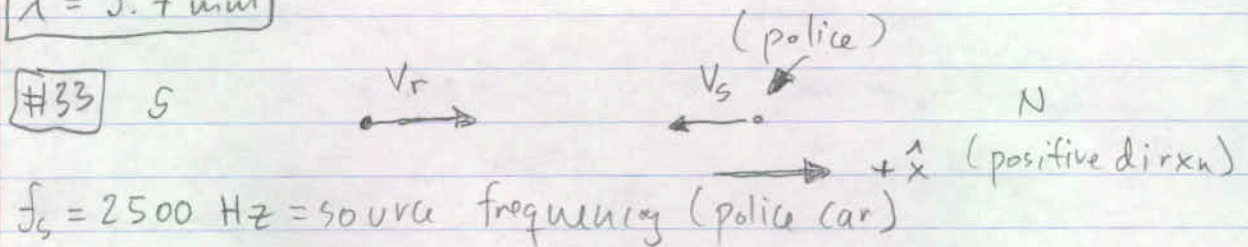 λ = 5.4 mm
(police)
#33 S Vr Vs N
+ x̂ (positive dirxn)
fs = 2500 Hz = source frequency (police car)